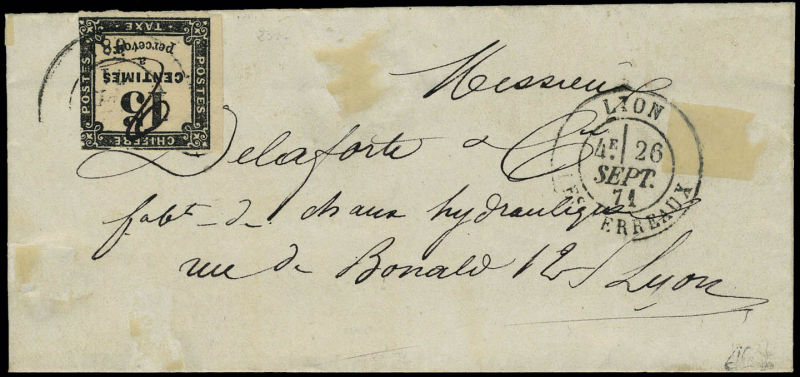 CHIFFRE
TAXE
POSTES
POSTES
15
CENTIMES
à
percevoir
Messieurs
Delaforte & Cie
fabts de chaux hydraulique
rue de Bonald 12
Lyon
LYON
4E 26
SEPT.
71
LES TERREAUX